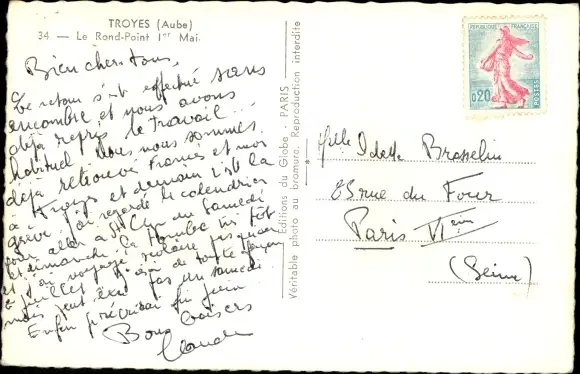 TROYES (Aube)
34. — Le Rond-Point 1er Mai.
Bien chers tous,
Le retour s'est effectué sans
encombre et nous avons
déjà repris le travail...
habituel. Nous nous sommes
déjà retrouvé Francis et moi
à Troyes et demain c'est la
grève, j'ai regardé le calendrier
pour aller à St Cyr du Samedi
et dimanche, la
un voyage scolaire jusqu'au
juillet de toute façon
mais peut être pas un samedi
Enfin prévenir fin juin
Bons baisers
Claude
Editions du Globe, PARIS —
Véritable photo au bromure. Reproduction interdite
REPUBLIQUE FRANCAISE
0,20
POSTES
Mlle Odette Brasselin
85 rue du Four
Paris VIème
(Seine)